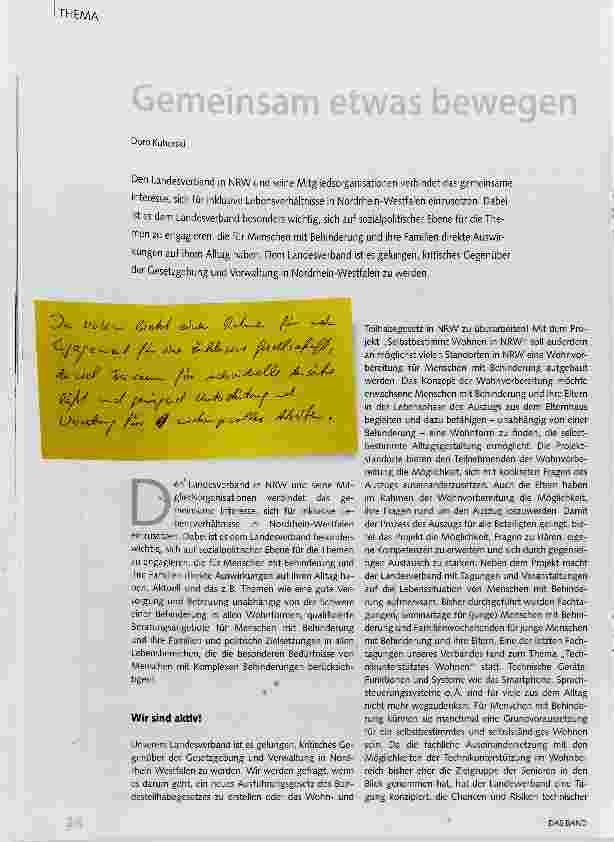 THEMA
Gemeinsam etwas bewegen
Dorn Kuberski
Den Landesverband in NRW und seine Mitgliedsorganisationen verbindet das gemeinsame
Interesse, sich für inklusive Lebensverhältnisse in Nordrhein-Westfalen einzusetzen. Dabei
ist es dem Landesverband besonders wichtig, sich auf sozialpolitischer Ebene für die The-
men zu engagieren, die für Menschen mit Behinderung und ihre Familien direkte Auswir-
kungen auf ihren Alltag haben. Dem Landesverband ist es gelungen, kritisches Gegenüber
der Gesetzgebung und Verwaltung in Nordrhein-Westfalen zu werden.
für
für die inklusive Gesellschaft,
für individuelle
und
für
Den Landesverband in NRW und seine Mit-
gliedsorganisationen verbindet das ge-
meinsame Interesse, sich für inklusive Le-
bensverhältnisse in Nordrhein-Westfalen
einzusetzen. Dabei ist es dem Landesverband besonders
wichtig, sich auf sozialpolitischer Ebene für die Themen
zu engagieren, die für Menschen mit Behinderung und
ihre Familien direkte Auswirkungen auf ihren Alltag ha-
ben. Aktuell sind das z.B. Themen wie eine gute Ver-
sorgung und Betreuung unabhängig von der Schwere
einer Behinderung in allen Wohnformen, qualifizierte
Beratungsangebote für Menschen mit Behinderung
und ihre Familien und politische Zielsetzungen in allen
Lebensbereichen, die die besonderen Bedürfnisse von
Menschen mit Komplexen Behinderungen berücksich-
tigen.
Wir sind aktiv!
Unserem Landesverband ist es gelungen, kritisches Ge-
genüber der Gesetzgebung und Verwaltung in Nord-
rhein-Westfalen zu werden. Wir werden gefragt, wenn
es darum geht, ein neues Ausführungsgesetz des Bun-
desteilhabegesetzes zu erstellen oder das Wohn- und
Teilhabegesetz in NRW zu überarbeiten! Mit dem Pro-
jekt „Selbstbestimmt Wohnen in NRW“ soll außerdem
an möglichst vielen Standorten in NRW eine Wohnvor-
bereitung für Menschen mit Behinderung aufgebaut
werden. Das Konzept der Wohnvorbereitung möchte
erwachsene Menschen mit Behinderung und ihre Eltern
in der Lebensphase des Auszugs aus dem Elternhaus
begleiten und dazu befähigen – unabhängig von einer
Behinderung – eine Wohnform zu finden, die selbst-
bestimmte Alltagsgestaltung ermöglicht. Die Projekt-
standorte bieten den Teilnehmenden der Wohnvorbe-
reitung die Möglichkeit, sich mit konkreten Fragen des
Auszugs auseinanderzusetzen. Auch die Eltern haben
im Rahmen der Wohnvorbereitung die Möglichkeit,
ihre Fragen rund um den Auszug loszuwerden. Damit
der Prozess des Auszugs für alle Beteiligten gelingt, bie-
tet das Projekt die Möglichkeit, Fragen zu klären, eige-
ne Kompetenzen zu erweitern und sich durch gegensei-
tigen Austausch zu stärken. Neben dem Projekt macht
der Landesverband mit Tagungen und Veranstaltungen
auf die Lebenssituation von Menschen mit Behinde-
rung aufmerksam. Bisher durchgeführt wurden Fachta-
gungen, Seminartage für (junge) Menschen mit Behin-
derung und Familienwochenenden für junge Menschen
mit Behinderung und ihre Eltern. Eine der letzten Fach-
tagungen unseres Verbandes fand zum Thema „Tech-
nikunterstütztes Wohnen“ statt. Technische Geräte,
Funktionen und Systeme wie das Smartphone, Sprach-
steuerungssysteme o.Ä. sind für viele aus dem Alltag
nicht mehr wegzudenken. Für Menschen mit Behinde-
rung können sie manchmal eine Grundvoraussetzung
für ein selbstbestimmtes und selbstständiges Wohnen
sein. Da die fachliche Auseinandersetzung mit den
Möglichkeiten der Technikunterstützung im Wohnbe-
reich bisher eher die Zielgruppe der Senioren in den
Blick genommen hat, hat der Landesverband eine Ta-
gung konzipiert, die Chancen und Risiken technischer
DAS BAND